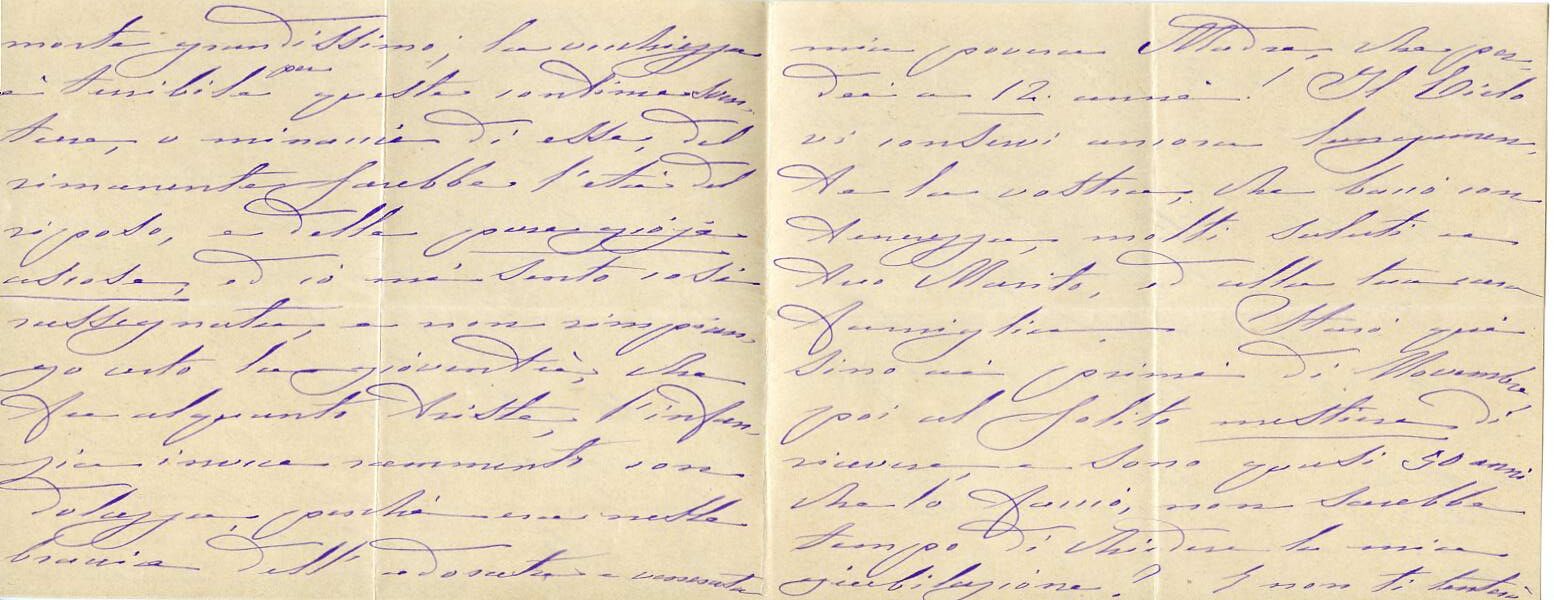 morte grandissimo; la vecchiezza
è terribile per queste continue sven-
ture, o minaccie di esse, del
rimanente sarebbe l'età del
riposo, e della pura gioja
ed io mi sento così
rassegnata, e non rimpian-
go certo la gioventù, che
fu alquanto triste, l'infan-
zia invece rammento con
dolcezza, perchè ero nelle
braccia dell'adorata e venerata
mia povera Madre, che per-
dei a 12 anni! Il Cielo
vi conservi ancora lungamen-
te la vostra, che bacio con
tenerezza, molti saluti a
tuo Marito, ed alla tua cara
famiglia. Starò qui
sino ai primi di Novembre,
poi al solito mestiere di
ricevere, e sono quasi 50 anni
che lo faccio, non sarebbe
tempo di chiedere la mia
giubilazione? E non ti